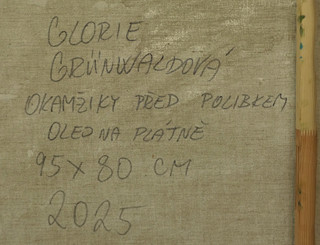 GLORIE
GRÜNWALDOVÁ
OKAMŽIKY PŘED POLIBKEM
OLEJ NA PLÁTNĚ
95 x 80 CM
2025